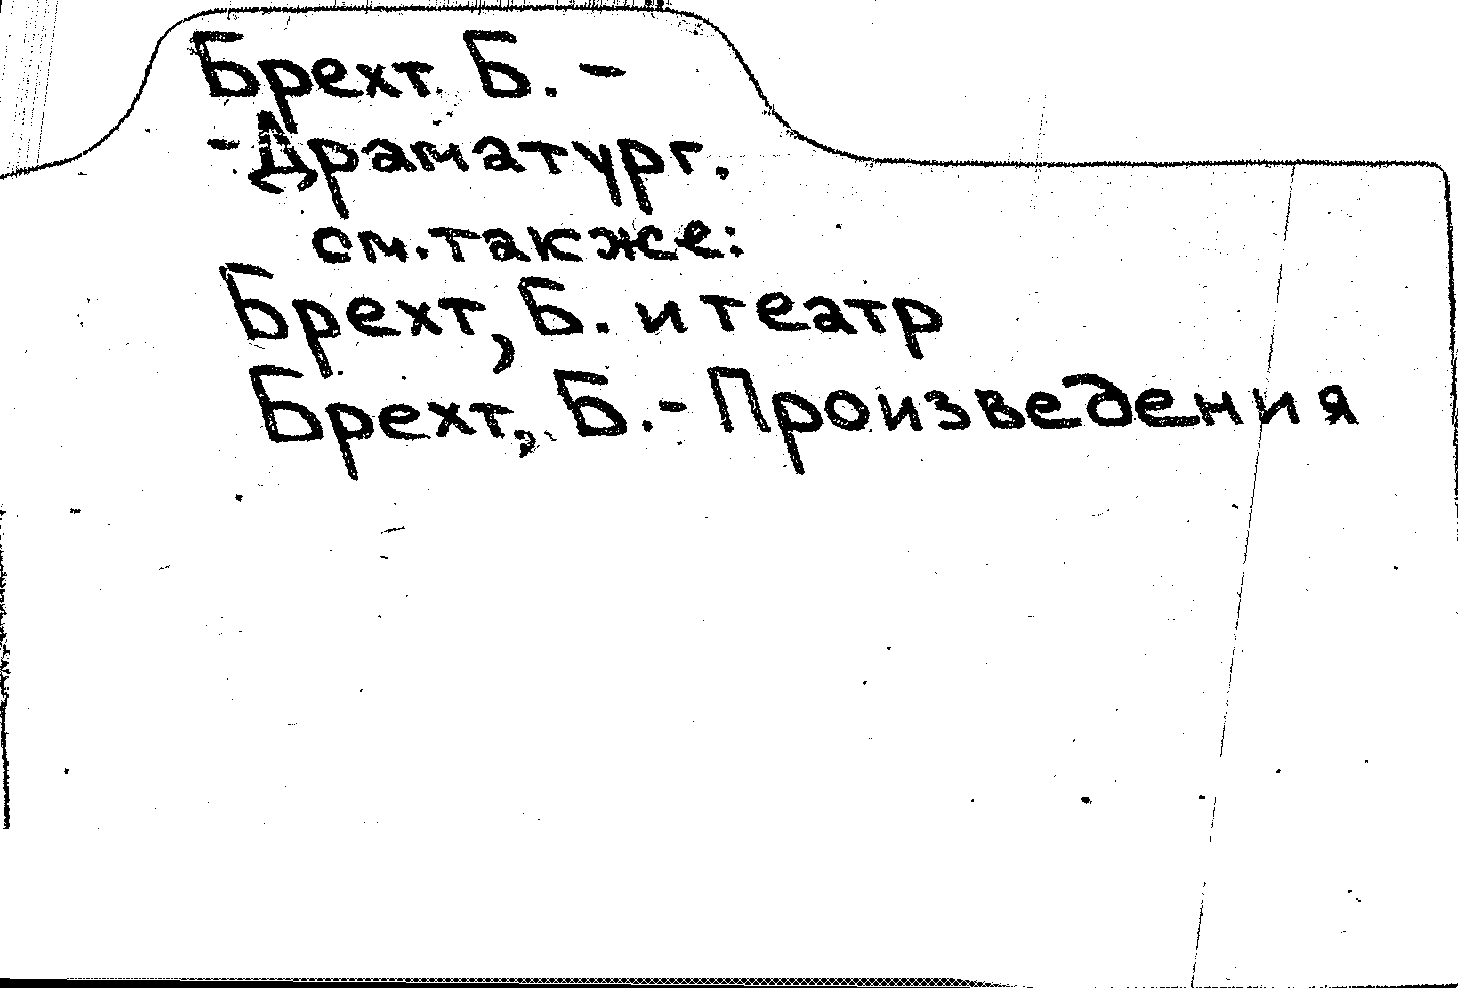 Брехт Б. -
- Драматург.
см. также:
Брехт, Б. и театр
Брехт, Б. - Произведения